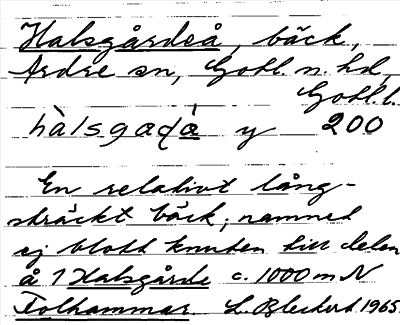 Halsgårdeå, bäck,
Ardre sn, Gotl. n. hd,
Gotl. l.
y 200
En relativt lång-
sträckt bäck; namnet
ej blott knuten till delen
å 1 Halsgårde c. 1000 m N
Folhammar. L. Bleckert 1965.